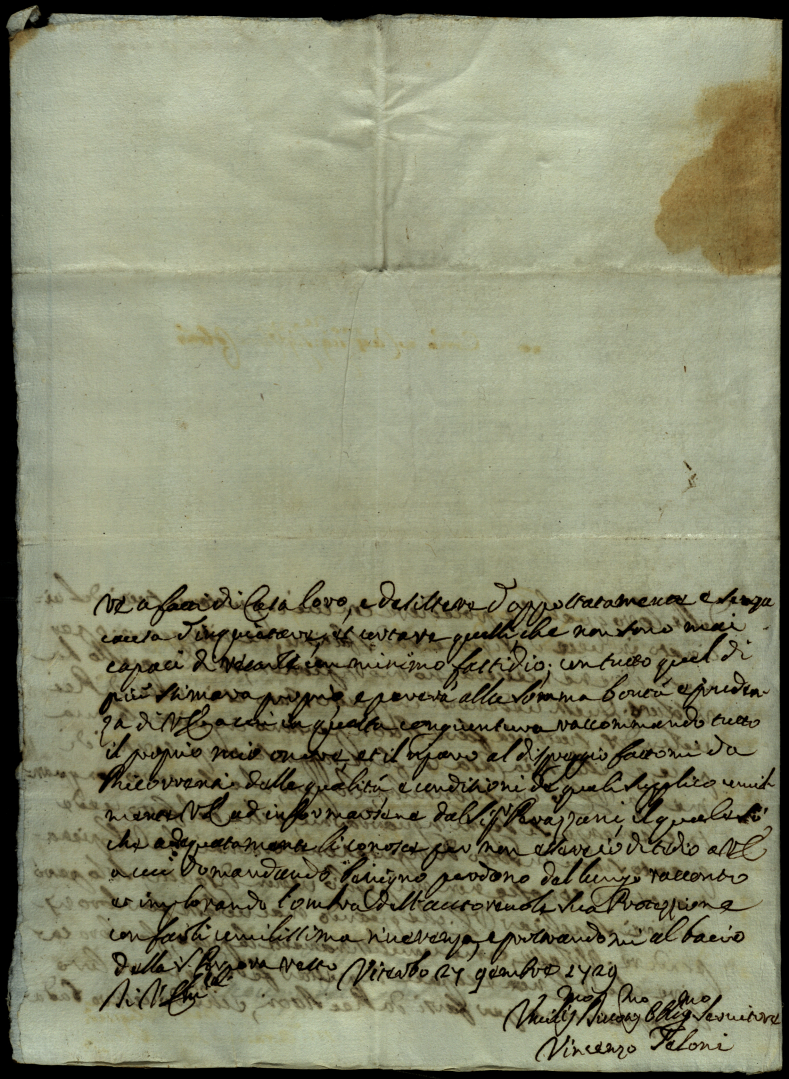 a fatti di Casa loro, e desistere d'appostatamente e senza
causa d'inquietare, et urtare quelli che non sono mai
capaci di recarli un minimo fastidio; con tutto quel di
più stimarà proprio, e parerà alla somma bontà e pruden-
za di VS a cui in questa congiuntura raccommando tutto
il proprio mio onore, et il riparo al dispreggio fattomi da
Ricorrenti delle qualità e conditioni de quali supplico umil-
mente VS ad informarsene dal Sigr il quale so
che adequatamente li conosce per non essere io di tedio a VS
a cui domandando benigno perdono del lungo racconto
et implorando l'ombra dell'autorevole sua Protezzione
con farli umilissima riverenza, e portandomi al bacio
della resto Viterbo 27 1729
Di VS
Umilmo Obligmo Servitore
Vincenzo Faloni